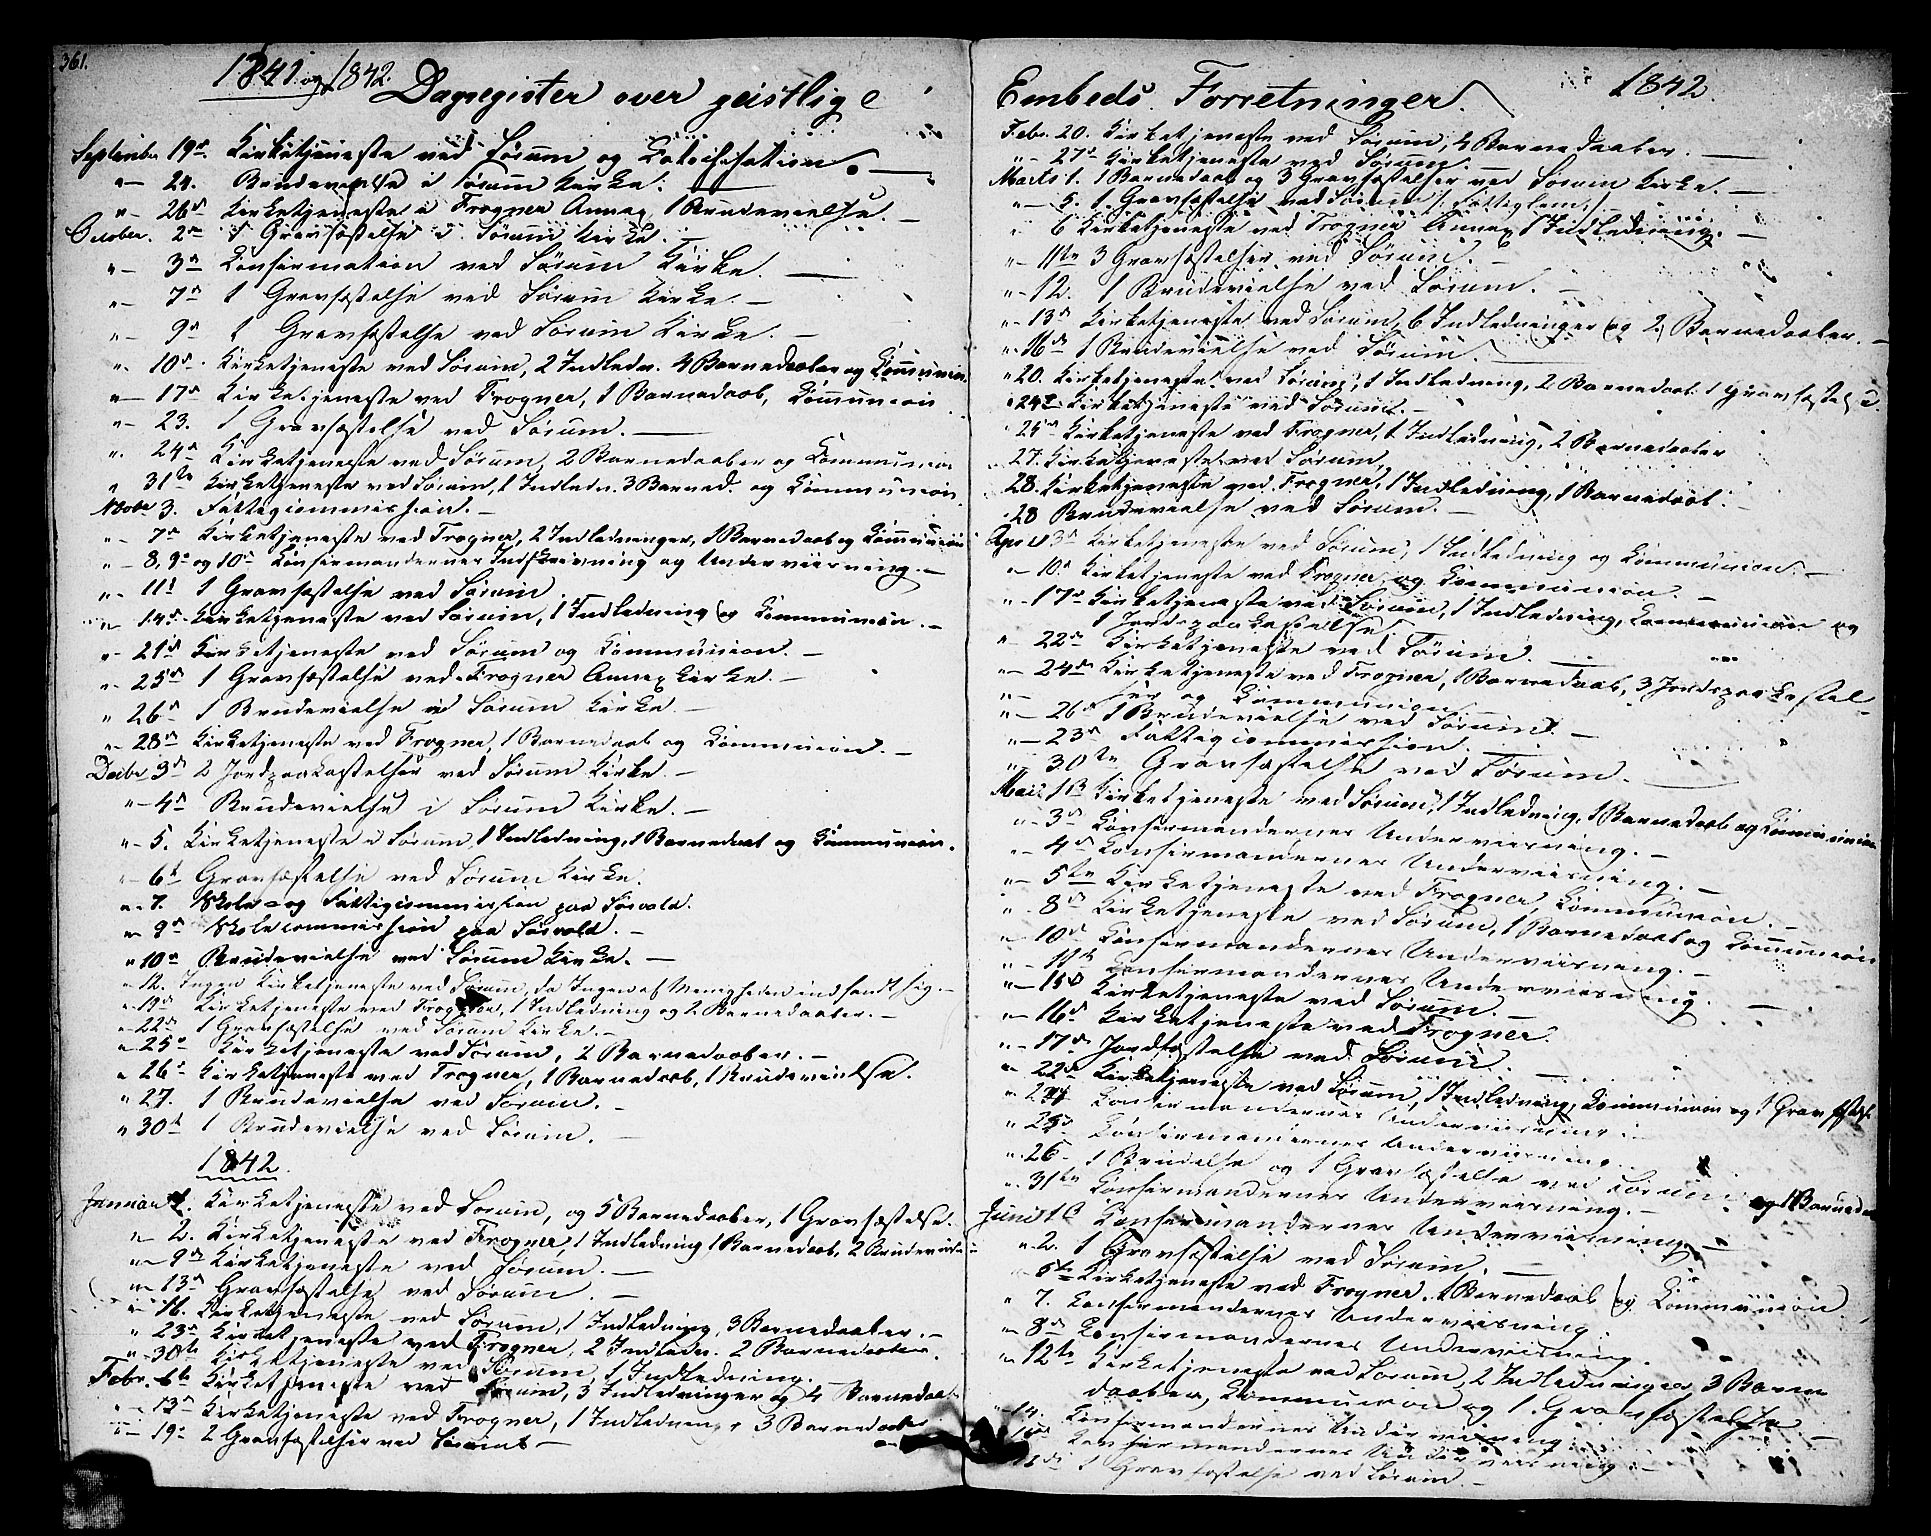 361.
1841. og 1842. Dagregister over geistlige
September 19de Kirketjeneste ved Sörum og Catechisation. —
" — 24. Brudevielse i Sörum Kirke. —
" — 26de Kirketjeneste i Frogner Annex, 1 Brudevielse. —
October. 2den 1 Gravfæstelse i Sörum Kirke. —
" — 3de Confirmation ved Sörum Kirke. —
" — 7de 1 Gravfæstelse ved Sörum Kirke. —
" — 9de 1 Gravfæstelse ved Sörum Kirke. —
" — 10de Kirketjeneste ved Sörum, 2 Indledn. 4 Barnedaaber og Communion.
" — 17de Kirketjeneste ved Frogner, 1 Barnedaab, Communion
" — 23. 1 Gravfæstelse ved Sörum. —
" — 24de Kirketjeneste ved Sörum, 2 Barnedaaber og Communion
" 31te Kirketjeneste ved Sörum, 1 Indledn. 3 Barned. og Communion.
Novbr 3. Fattigcommission. —
" — 7de Kirketjeneste ved Frogner, 2 Indledninger, 1 Barnedaab og Communion
" — 8, 9de og 10de Confirmandernes Indskrivning og Underviisning. —
" — 11te 1 Gravfæstelse ved Sörum.
" — 14de Kirketjeneste ved Sörum, 1 Indledning og Communion. —
" — 21de Kirketjeneste ved Sörum og Communion. —
" — 25de 1 Gravfæstelse ved Frogner Annex Kirke. —
" 26de 1 Brudevielse ved Sörum Kirke. —
" — 28de Kirketjeneste ved Frogner, 1 Barnedaab og Communion. —
Decbr 3de 2 Jordpaakastelser ved Sörum Kirke. —
" — 4de Brudevielse i Sörum Kirke. —
" — 5. Kirketjeneste i Sörum, 1 Indledning, 1 Barnedaab og Communion.
" — 6te Gravfæstelse ved Sörum Kirke.
" — 7. Skole- og Fattigcommission paa Sörvald.
" — 9de Skolecommission paa Sörvald. —
" 10de Brudevielse ved Sörum Kirke. —
" 12. Ingen Kirketjeneste ved Sörum, da Ingen af Menigheden indfandt sig. —
" 19de Kirketjeneste ved Frogner, 1 Indledning og 2 Barnedaaber. —
" 22de 1 Gravfæstelse ved Sörum Kirke. —
" 25de Kirketjeneste ved Sörum, 2 Barnedaaber. —
" 26de Kirketjeneste ved Frogner, 1 Barnedaab, 1 Brudevielse.
" 27. 1 Brudevielse ved Sörum. —
" 30te 1 Brudevielse ved Sörum. —
1842.
Januar 1. Kirketjeneste ved Sörum, og 5 Barnedaaber, 1 Gravfæstelse.
" — 2. Kirketjeneste ved Frogner, 1 Indledning 1 Barnedaab, 2 Brudevielser
" — 9de Kirketjeneste ved Sörum. —
" — 13de Gravfæstelse ved Sörum. —
" 16. Kirketjeneste ved Sörum, 1 Indledning, 3 Barnedaaber. —
" 23de Kirketjeneste ved Frogner, 2 Indledn. 2 Barnedaaber.
" — 30te Kirketjeneste ved Sörum, 1 Indledning.
Febr. 6te Kirketjeneste ved Sörum, 3 Indledninger og 4 Barnedaaber
" — 13de Kirketjeneste ved Frogner, 1 Indledning, 3 Barnedaaber
" — 19de 2 Gravfæstelser ved Sörum —
Embeds Forretninger. 1842.
Febr. 20. Kirketjeneste ved Sörum, 4 Barnedaaber. —
" — 27de Kirketjeneste ved Sörum. —
Marts 1. 1 Barnedaab og 3 Gravfæstelser ved Sörum Kirke. —
" — 5. 1 Gravfæstelse ved Sörum /: Fattiglem :/
" 6 Kirketjeneste ved Frogner Annex 1 Indledning. —
" — 11te 3 Gravfæstelser ved Sörum. —
" — 12. 1 Brudevielse ved Sörum. —
" — 13de Kirketjeneste ved Sörum, 6 Indledninger og 2 Barnedaaber. —
" 16de 1 Brudevielse ved Sörum. —
" 20. Kirketjeneste ved Sörum, 1 Indledning, 2 Barnedaab 1 Gravfæstelse.
" 24de Kirketjeneste ved Sörum. —
" 25de Kirketjeneste ved Frogner, 1 Indledning, 2 Barnedaaber
" 27. Kirketjeneste ved Sörum,
28. Kirketjeneste ved Frogner, 1 Indledning, 1 Barnedaab. —
28 Brudevielse ved Sörum. —
April 3de Kirketjeneste ved Sörum, 1 Indledning og Communion. —
" — 10. Kirketjeneste ved Frogner og Communion. —
" — 17de Kirketjeneste ved Sörum, 1 Indledning, Communion og
1 Jordpaakastelse
" 22de Kirketjeneste ved Sörum. —
" — 24de Kirketjeneste ved Frogner, 1 Barnedaab, 3 Jordspaakastel-
" — ser og Communion.
" — 26de 1 Brudevielse ved Sörum. —
" — 23de Fattigcommission. —
" — 30te Gravfæstelse ved Sörum. —
Mai 1te Kirketjeneste ved Sörum, 1 Indledning, 1 Barnedaab og Communion
" — 3de Confirmandernes Underviisning. —
" — 4de Confirmandernes Underviisning. —
" — 5te Kirketjeneste ved Frogner, Communion. —
" . 8de Kirketjeneste ved Sörum, 1 Barnedaab og Communion
" 10de Confirmandernes Underviisning. —
" — 11te Confirmandernes Underviisning. —
" — 15de Kirketjeneste ved Sörum. —
" — 16de Kirketjeneste ved Frogner.
" — 17de Jordfæstelse ved Sörum. —
" 22de Kirketjeneste ved Sörum, 1 Indledning, Communion og 1 Gravfæstel.
" 24 Confirmandernes Underviisning. —
" 25de Confirmandernes Underviisning.
" 26 — 1 Brudelse og 1 Gravfæstelse ved Sörum og 1 Barneda
" 31te Confirmandernes Underviisning. —
Juni 1te Confirmandernes Underviisning —
" 2. 1 Gravfæstelse ved Sörum. —
5te Kirketjeneste ved Frogner, 1 Barnedaab og Communion
" 7. Confirmandernes Underviisning.
" 8de Confirmandernes Underviisning.
" 12te Kirketjeneste ved Sörum, 2 Indledninger, 3 Barne
daaber, Communion og 1 Gravfæstelse —
" 14. Confirmandernes Underviisning.
15de Confirmandernes Underviisning. —
1 Gravfæstelse ved Sörum. —